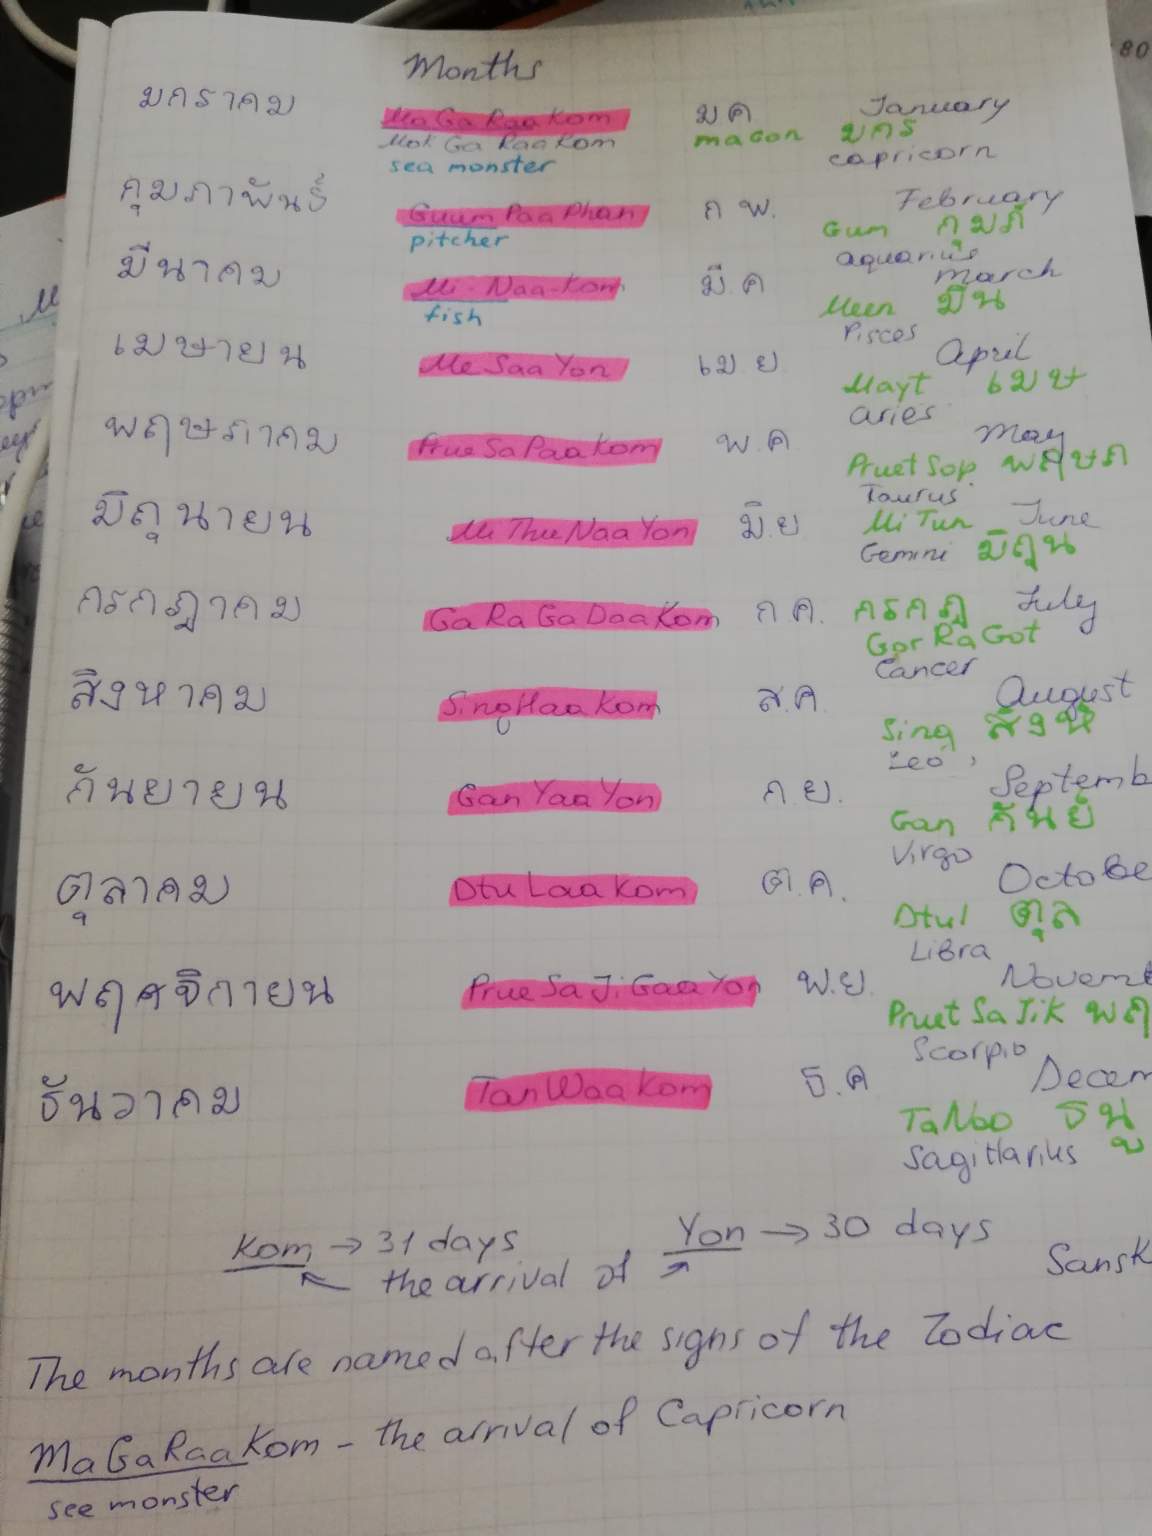 80
Months
มกราคม MaGaRaaKom มค January
Mok Ga RaaKom macon มกร
sea monster capricorn
กุมภาพันธ์ GuumPaaPhan ก พ. February
pitcher Gum กุมภ์
aquarius
มีนาคม Mi-Naa-Kom มี.ค March
fish Meen มีน
Pisces
เมษายน MeSaaYon เม ย April
Mayt เมษ
aries
พฤษภาคม PrueSaPaaKom พ.ค May
Pruet Sop พฤษภ
Taurus
มิถุนายน MiThuNaaYon มิ.ย Mi Tun June
Gemini มิถุน
กรกฎาคม GaRaGaDaaKom ก ค. กรกฎ July
Gor Ra Got
Cancer
สิงหาคม SingHaaKom ส.ค August
Sing สิงห์
Leo
กันยายน GanYaaYon ก ย. Septemb
Gan กันย์
Virgo
ตุลาคม DtuLaaKom ต.ค. Octobe
Dtul ตุล
Libra
พฤศจิกายน PrueSaJiGaaYon พ.ย. Novemb
Pruet Sa Jik พฤ
Scorpio
ธันวาคม TanWaaKom ธ.ค Decem
TaNoo ธนู
Sagittarius
Kom → 31 days Yon → 30 days
the arrival of Sansk
The months are named after the signs of the Zodiac
MaGaRaaKom - the arrival of Capricorn
see monster